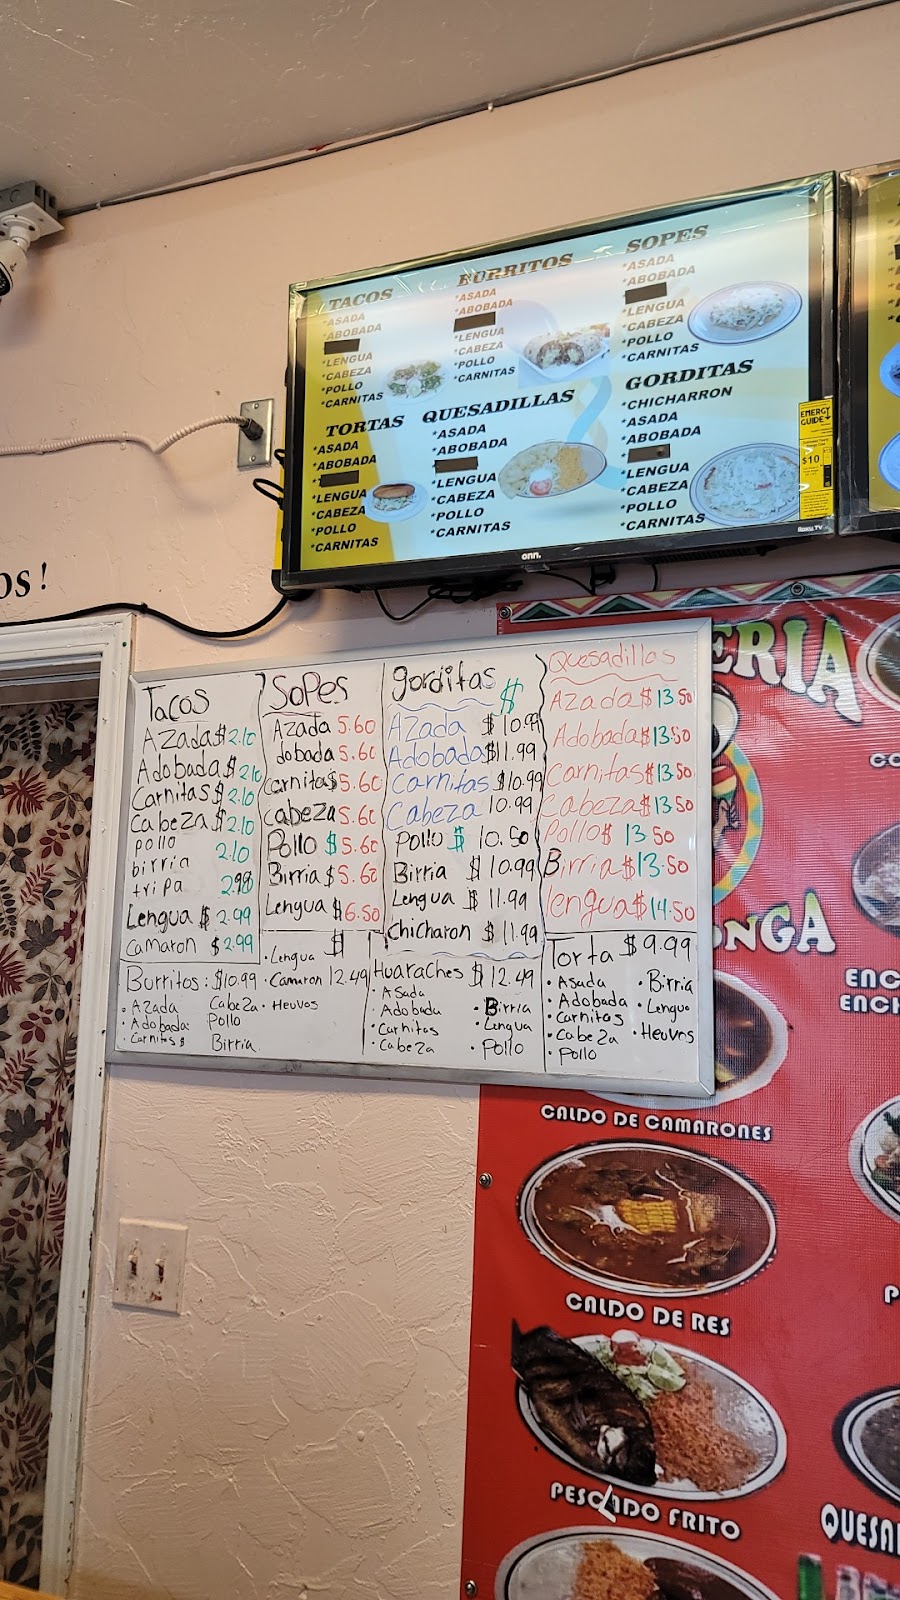 TACOS
*ASADA
*ABOBADA
*LENGUA
*CABEZA
*POLLO
*CARNITAS
BURRITOS
*ASADA
*ABOBADA
*LENGUA
*CABEZA
*POLLO
*CARNITAS
SOPES
*ASADA
*ABOBADA
*LENGUA
*CABEZA
*POLLO
*CARNITAS
TORTAS
*ASADA
*ABOBADA
*LENGUA
*CABEZA
*POLLO
*CARNITAS
QUESADILLAS
*ASADA
*ABOBADA
*LENGUA
*CABEZA
*POLLO
*CARNITAS
GORDITAS
*CHICHARRON
*ASADA
*ABOBADA
*LENGUA
*CABEZA
*POLLO
*CARNITAS
ENERGY
GUIDE
$10
onn.
Roku TV
OS!
Tacos
AZada $ 2.10
Adobada $ 2.10
Carnitas $ 2.10
CabeZa $ 2.10
pollo
birria 2.10
tripa 2.99
Lengua $ 2.99
Camaron $ 2.99
SoPes
AZada 5.60
dobada 5.60
Carnitas $5.60
CabeZa 5.60
Pollo $ 5.60
Birria $ 5.60
Lengua $ 6.50
gorditas $
AZada $ 10.99
Adobada $11.99
Carnitas $10.99
CabeZa 10.99
Pollo $ 10.50
Birria $ 10.99
Lengua $ 11.99
chicharon $ 11.99
Quesadillas
AZada $ 13.50
Adobada $13.50
Carnitas $13.50
CabeZa $13.50
Pollo $ 13.50
Birria $13.50
lengua $14.50
Burritos: $10.99
• AZada
• Adobada
• Carnitas
CabeZa
Pollo
Birria
$
• Lengua
• Camaron 12.49
• Heuvos
Huaraches $ 12.49
• ASada
• Adobada
• Carnitas
• CabeZa
• Birria
• Lengua
• Pollo
Torta $ 9.99
• Asada
• Adobada
• Carnitas
• CabeZa
• Pollo
• Birria
• Lengua
• Heuvos
ERIA
NGA
CO
ENC
ENCH
CALDO DE CAMARONES
CALDO DE RES
P
PESCADO FRITO
QUESA